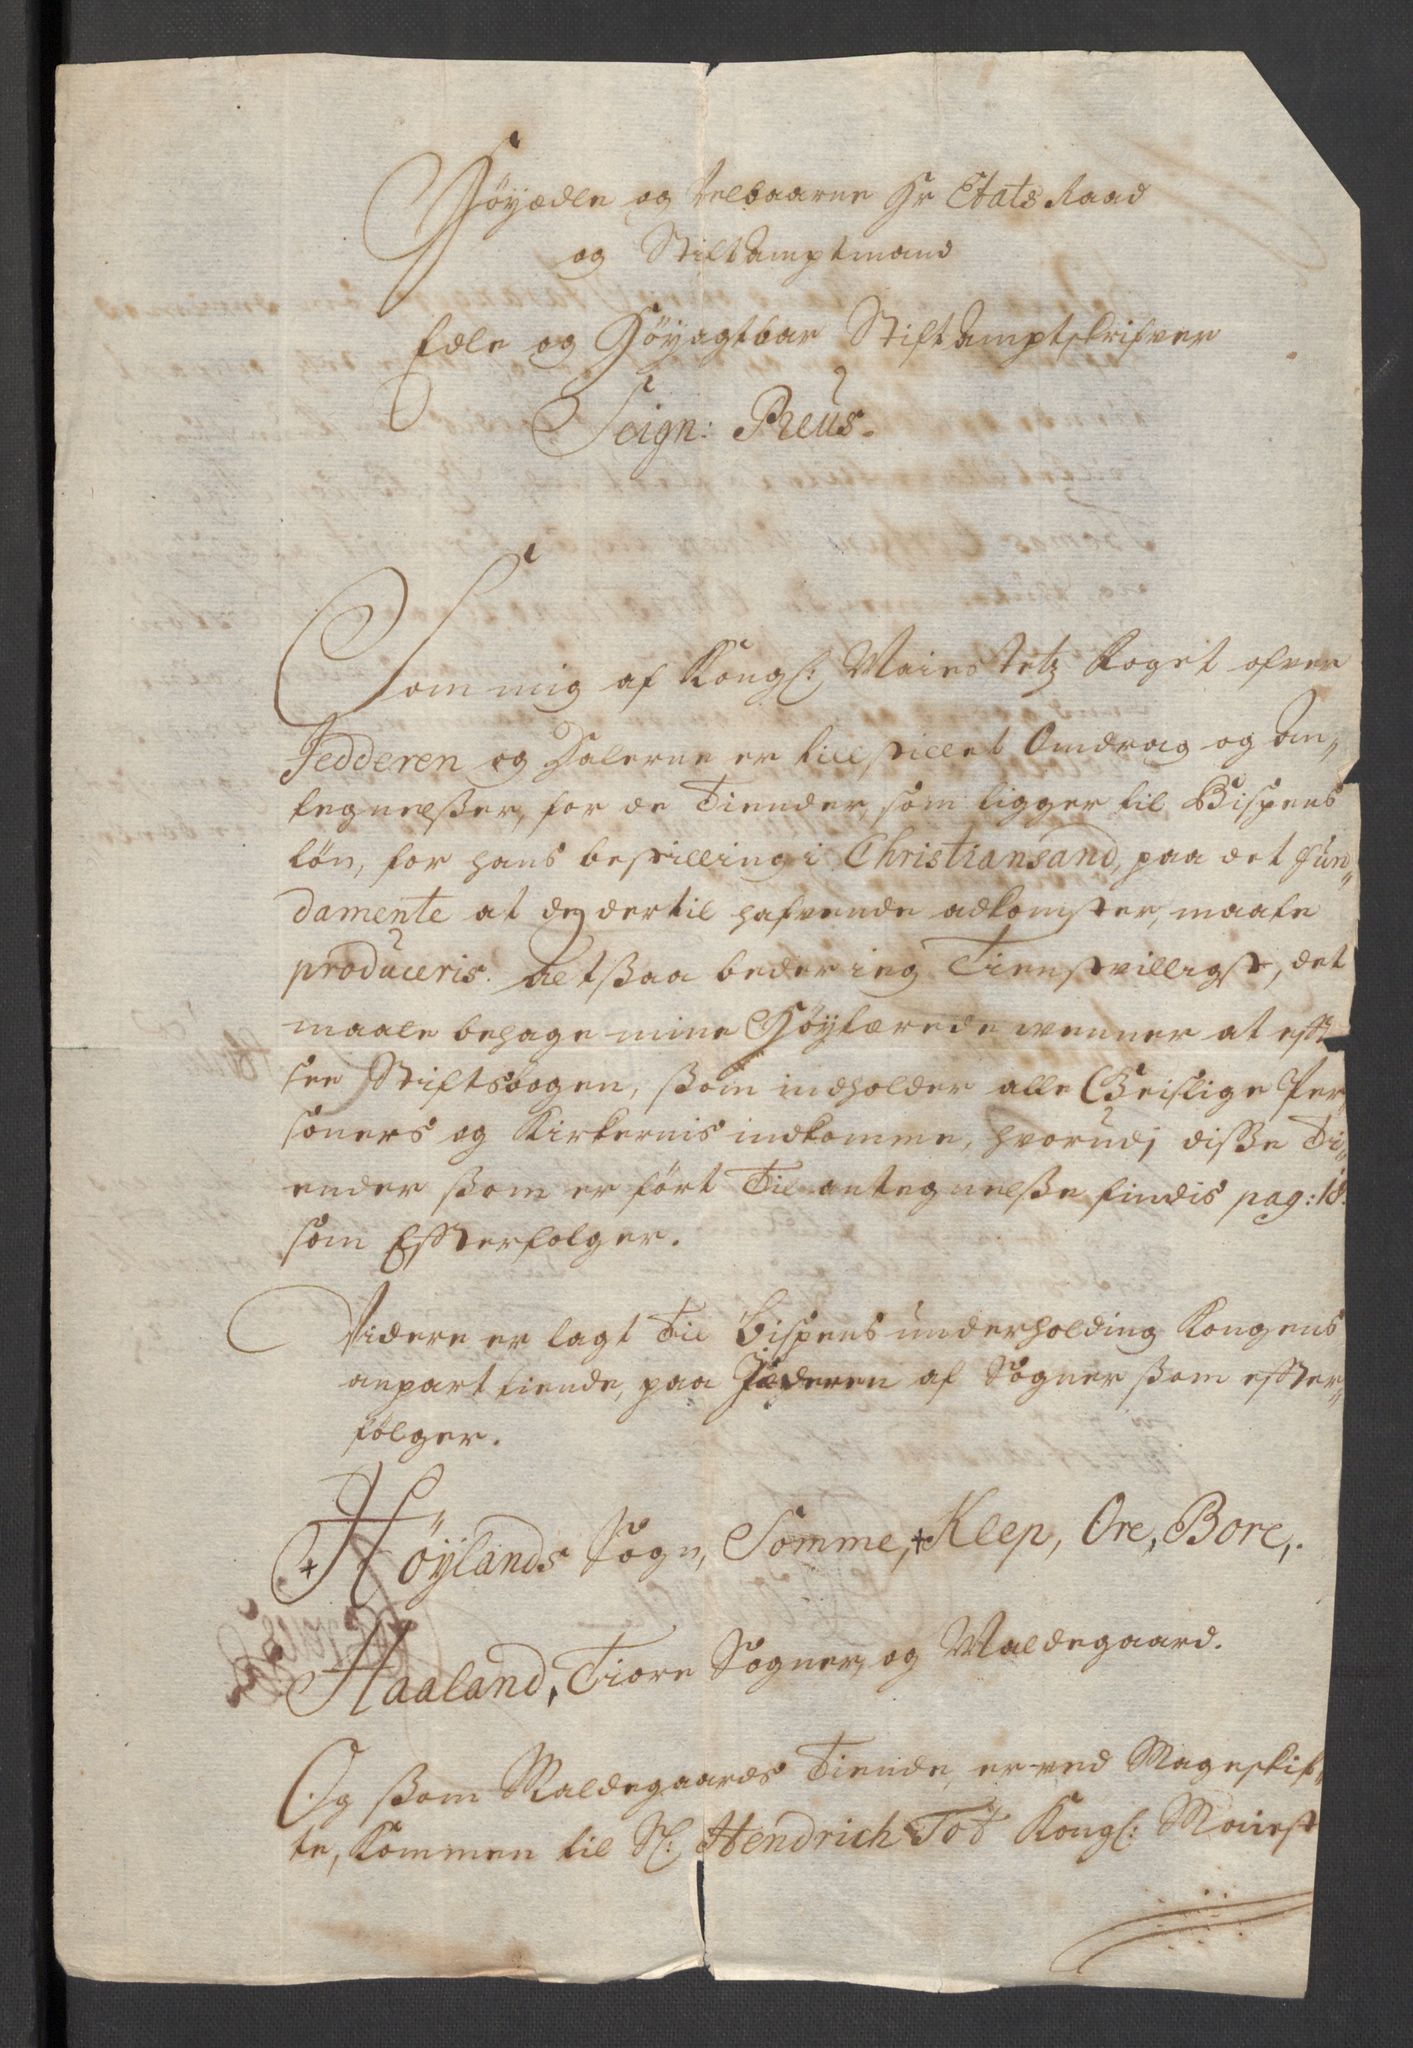 Höyædle og Velbaarne Hr Etats Raad
og Stiftamptmand
Edle og Höyagtbar Stiftamptskrifver
Seign: Preus.
Som mig af Kongl: Maies tetz Foget ofver
Jedderen og Dalerne er tillstillet Omdrag og An„
tegnelßer, for de Tiender, som ligger til Bispens
løn, for hans bestilling i Christiansand, paa det Fun„
damente at de dertil hafvende adkomster, maate
produceris. Altßaa beder ieg Tienstvilligst, det
maate behage mine Höylærede venner at eff
see Stiftsbogen, ßom indholder alle Geistlige Per„
soners og Kirkernis indkomme, hvorudj disße Ti„
ender ßom er fört Til antegnelße findis pag: 18.
som Effterfolger.
Videre er lagt Til Bispens underholding Kongens
anpart tiende, paa Jæderen af Sogner ßom effter„
følger.
+ Höylands Sogn, Somme, + Kleep, Ore, Bore,
Haaland, Tiore Sogner, og Maldegaard.
Og ßom Maldegaards Tiende, er ved Mageskif„
te, kommen til Sl: Hendrich Tot Kongl: Maiest